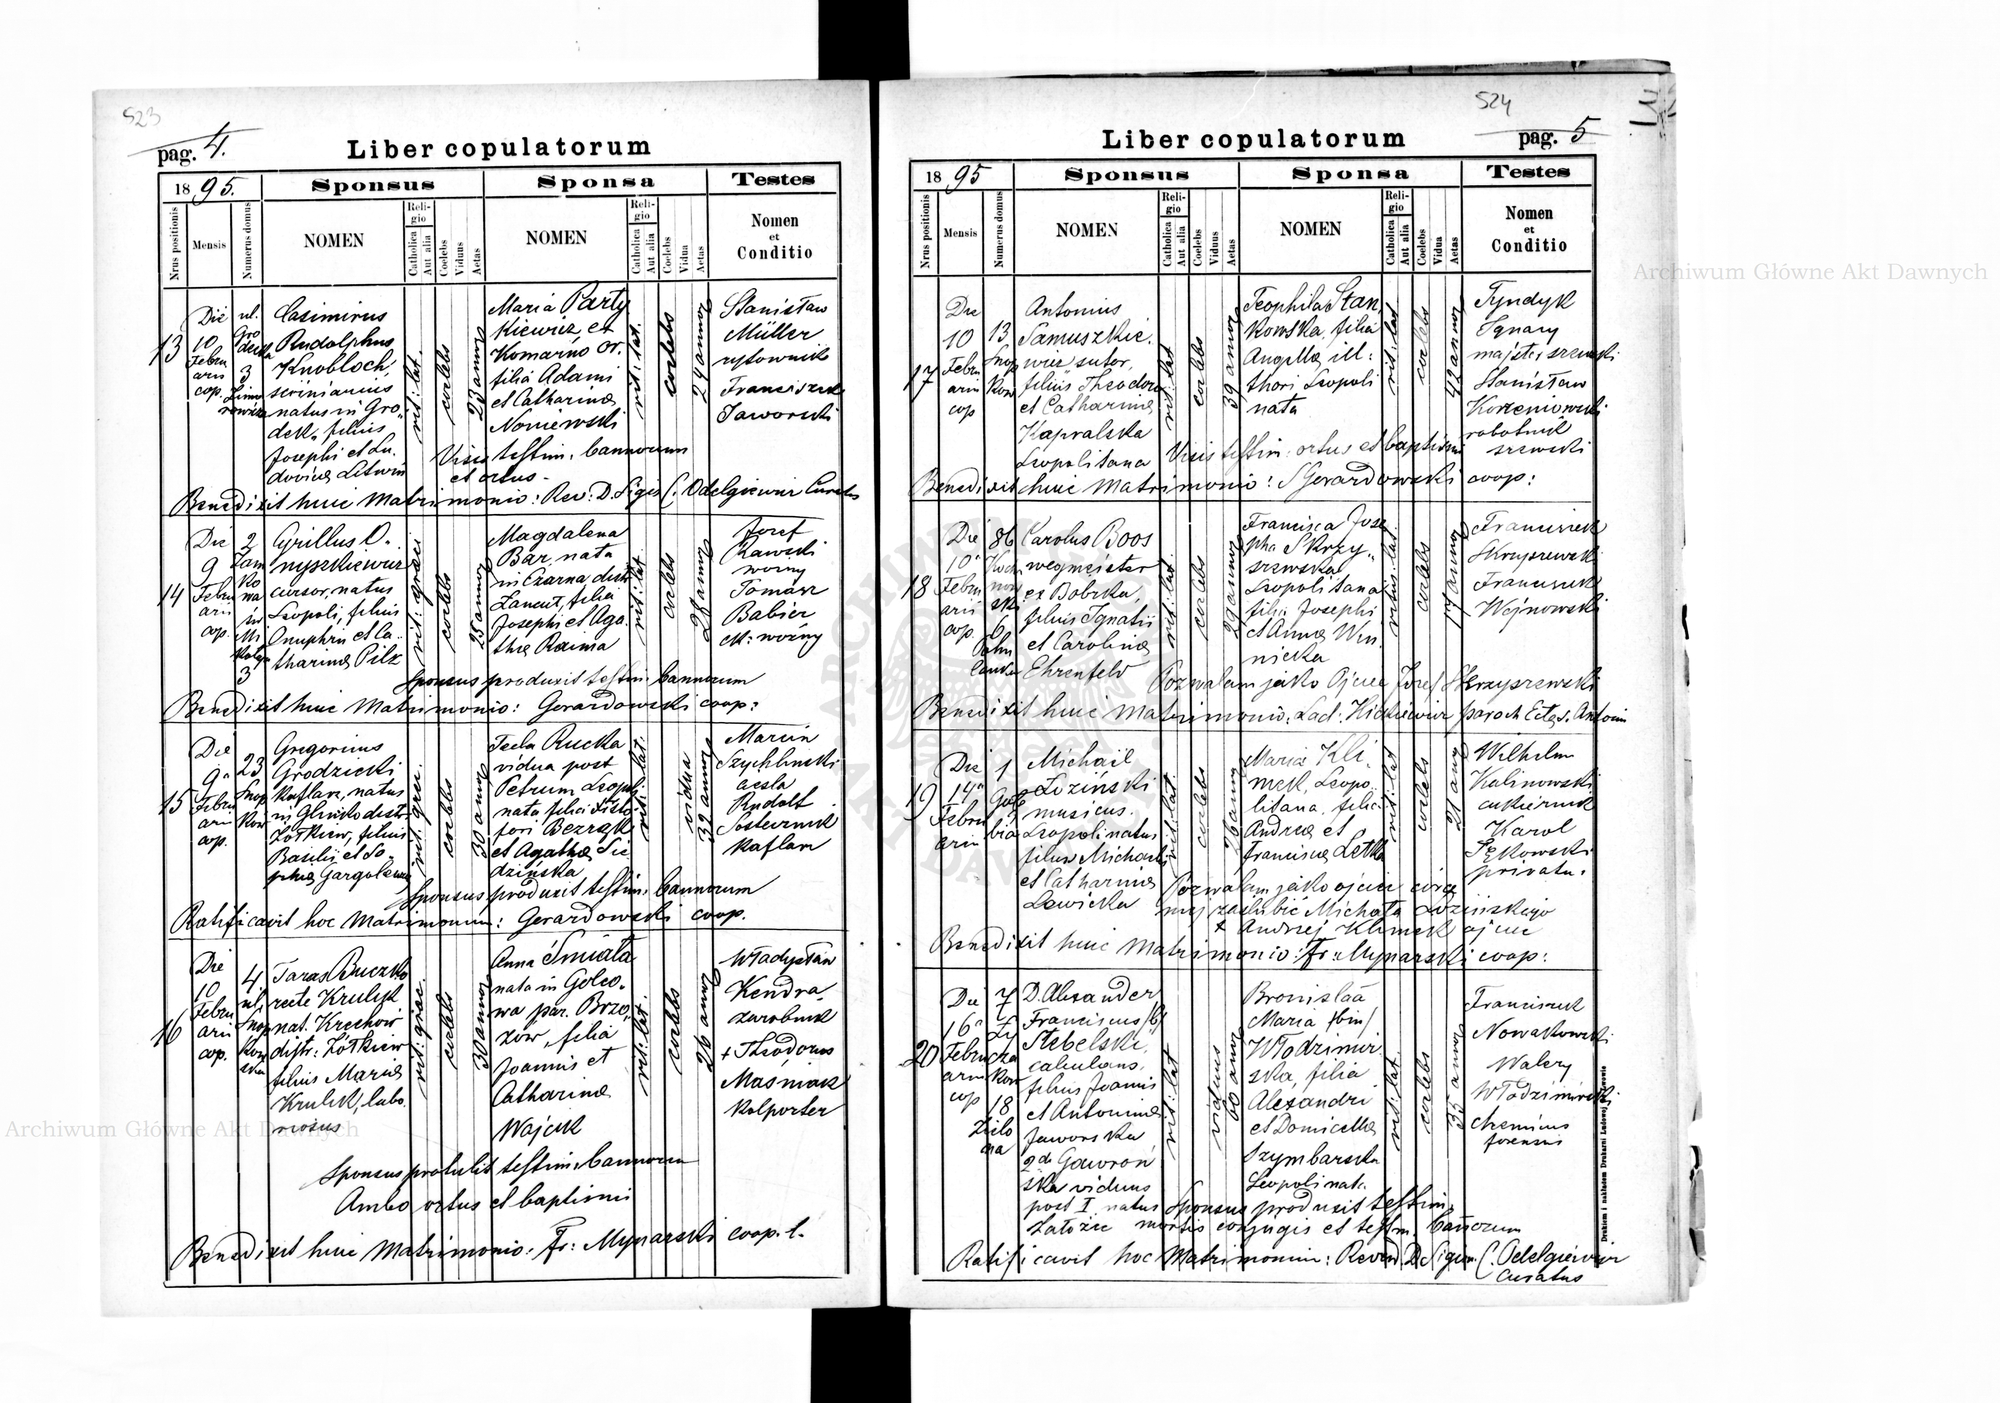 523
pag. 4.
Liber copulatorum
1895.
Sponsus
Sponsa
Testes
Nrus positionis
Mensis
Numerus domus
NOMEN
Religio
Catholica
Aut alia
Coelebs
Viduus
Aetas
NOMEN
Religio
Catholica
Aut alia
Coelebs
Vidua
Aetas
Nomen
et
Conditio
13
Die
10
Febru
arii
cop.
ul.
Gro
decka
3
Casimirus
Rudolphus
Knobloch,
natus in Gro„
dek„ filius
Josephi et Lu„
dovicæ Litwin
rit: lat.
coelebs
23 annor
Maria Party
kiewicz et
Komarno or.
filia Adami
et Catharinæ
Noniewski
rit: lat.
coelebs
24 annor
Stanisław
Müller
rytownik
Franciszek
Jaworski
Visis testim. bannorum
et ortus.
Benedixit huic Matrimonio: Rev: D. Sigis C. Odelgiewicz Curatus
14
Die
9
Febru
arii
cop.
2
Zam
ko
wa
3
Cyrillus O„
nyszkiewicz
cursor, natus
Leopoli, filius
Onuphrii et Ca„
tharinæ Pilz
rit: græci
coelebs
25 annor
Magdalena
Bar, nata
in Czarna distr
Łancut, filia
Josephi et Aga„
thæ Raima
rit: lat
coelebs
28 annor
Józef
Rawski
woźny
Tomasz
Babier
M: woźny
Sponsus produxit testim. bannorum
Benedixit huic Matrimonio: Gerardowski coop:
15
Die
9a
Febru
arii
cop.
23
Snop
kow
Gregorius
Grodzicki
kaflarz, natus
in Glinsko distr
Żółkiew, filius
Basilii et So„
phiæ
rit: græc.
coelebs
30 annor
Tecla Rucka
vidua post
Petrum Leopoli
nata filia
Bezrąk
et Agathæ Sie
dzińska
rit: lat.
vidua
39 annor
Marcin
Szychlinski
cieśla
Rudolf
kaflarz
Sponsus produxit testim. bannorum
Ratificavit hoc Matrimonium: Gerardowski coop.
16
Die
10
Febru
arii
cop.
4
ul.
Snop
kow
ska
Taras Buczko
recte Krulyk
nat. Krechów
distr: Żółkiew
filius Mariæ
Krulyk, labo„
riosus
rit: græc.
coelebs
30 annor
Anna Śmiała
nata in Golco„
wa par. Brzo„
zów, filia
Joannis et
Catharinæ
Wójcik
rit: lat.
coelebs
26 annor
Władysław
Kendra
zarobnik
+ Theodorus
Maśniak
kolporter
Sponsus protulit testim. bannorum
Ambo ortus et baptismi
Benedixit huic Matrimonio: Fr: Mynarski coop. l.
524
pag. 5
Liber copulatorum
1895
Sponsus
Sponsa
Testes
Nrus positionis
Mensis
Numerus domus
NOMEN
Religio
Catholica
Aut alia
Coelebs
Viduus
Aetas
NOMEN
Religio
Catholica
Aut alia
Coelebs
Vidua
Aetas
Nomen
et
Conditio
17
Die
10
Febru
arii
cop
13.
Snop
kow
Antonius
Samuszkie„
wicz sutor,
filius Theodori
et Catharinæ
Kapralska
Leopolitana
rit: lat
coelebs
39 annor
Teophila Stan„
kowska, filia
Angelæ ille:
thori Leopoli
nata
rit: lat
coelebs
42 annor
Tyndyk
Ignacy
majster szewski
Stanisław
Korzeniowski
robotnik
szewski
Visis testim: ortus et baptismi
Benedixit huic Matrimonio: S Gerardowski coop:
18
Die
10a
Febru
arii
cop.
86
Koch
now
ski
6
Carolus Boos
wegmeister
ex Bobrka,
filius Ignatii
et Carolinæ
Ehrenfeld
rit: lat
coelebs
29 annor
Francisca Jose
pha Skrzy„
szewska
Leopolitana
filia Josephi
et Annæ Win
nicka
ritus lat.
coelebs
17 annor
Franciszek
Skrzyszewski
Franciszek
Wojnowski
Pozwalam jako Ojciec Józef Skrzyszewski
Benedixit huic Matrimonio: Lad: Kickiewicz paroch Eccl. S. Antonii
19
Die
14a
Febru
arii
1
Michaël
Łoziński
musicus.
Leopoli natus
filius Michaelis
et Catharinæ
Ławicka
rit: lat.
coelebs
26 annor
Maria Kli„
mek, Leopo„
litana, filia
Andreæ et
Franciscæ Letka
rit: lat
coelebs
21 ann
Wilhelm
Kalinowski
cukiernik
Karol
Sękowski
privatus
Pozwalam jako ojciec córce
mej zaślubić Michała Łozińskiego
+ Andrzej Klimek ojciec
Benedixit huic Matrimonio: Fr: Mynarski coop:
20
Die
16a
Febru
arii
cop
7
Ły
cza
kow
18
Zielo
na
D. Alexander
Franciscus /bj/
Stebelski,
filius Joannis
et Antoninæ
Jaworska
2do Gawroń
ska viduus
post I, natus
Załoźce
rit: lat
viduus
60 annor
Bronislaa
Maria /bin/
Włodzimir„
ska, filia
Alexandri
et Domicellæ
Szymbarska
Leopoli nat.
rit: lat
coelebs
35 annor
Franciszek
Nowakowski
Walery
Włodzimirski
chemicus
forensis
Sponsus produxit testim.
mortis conjugis et testim. bannorum
Ratificavit hoc Matrimonium: Reverd D. Sigism. C. Odelgiewicz
curatus
Drukiem i nakładem Drukarni Ludowej we Lwowie
Archiwum Główne Akt Dawnych
Archiwum Główne Akt Dawnych
ARCHIWUM GŁÓWNE AKT DAWNYCH